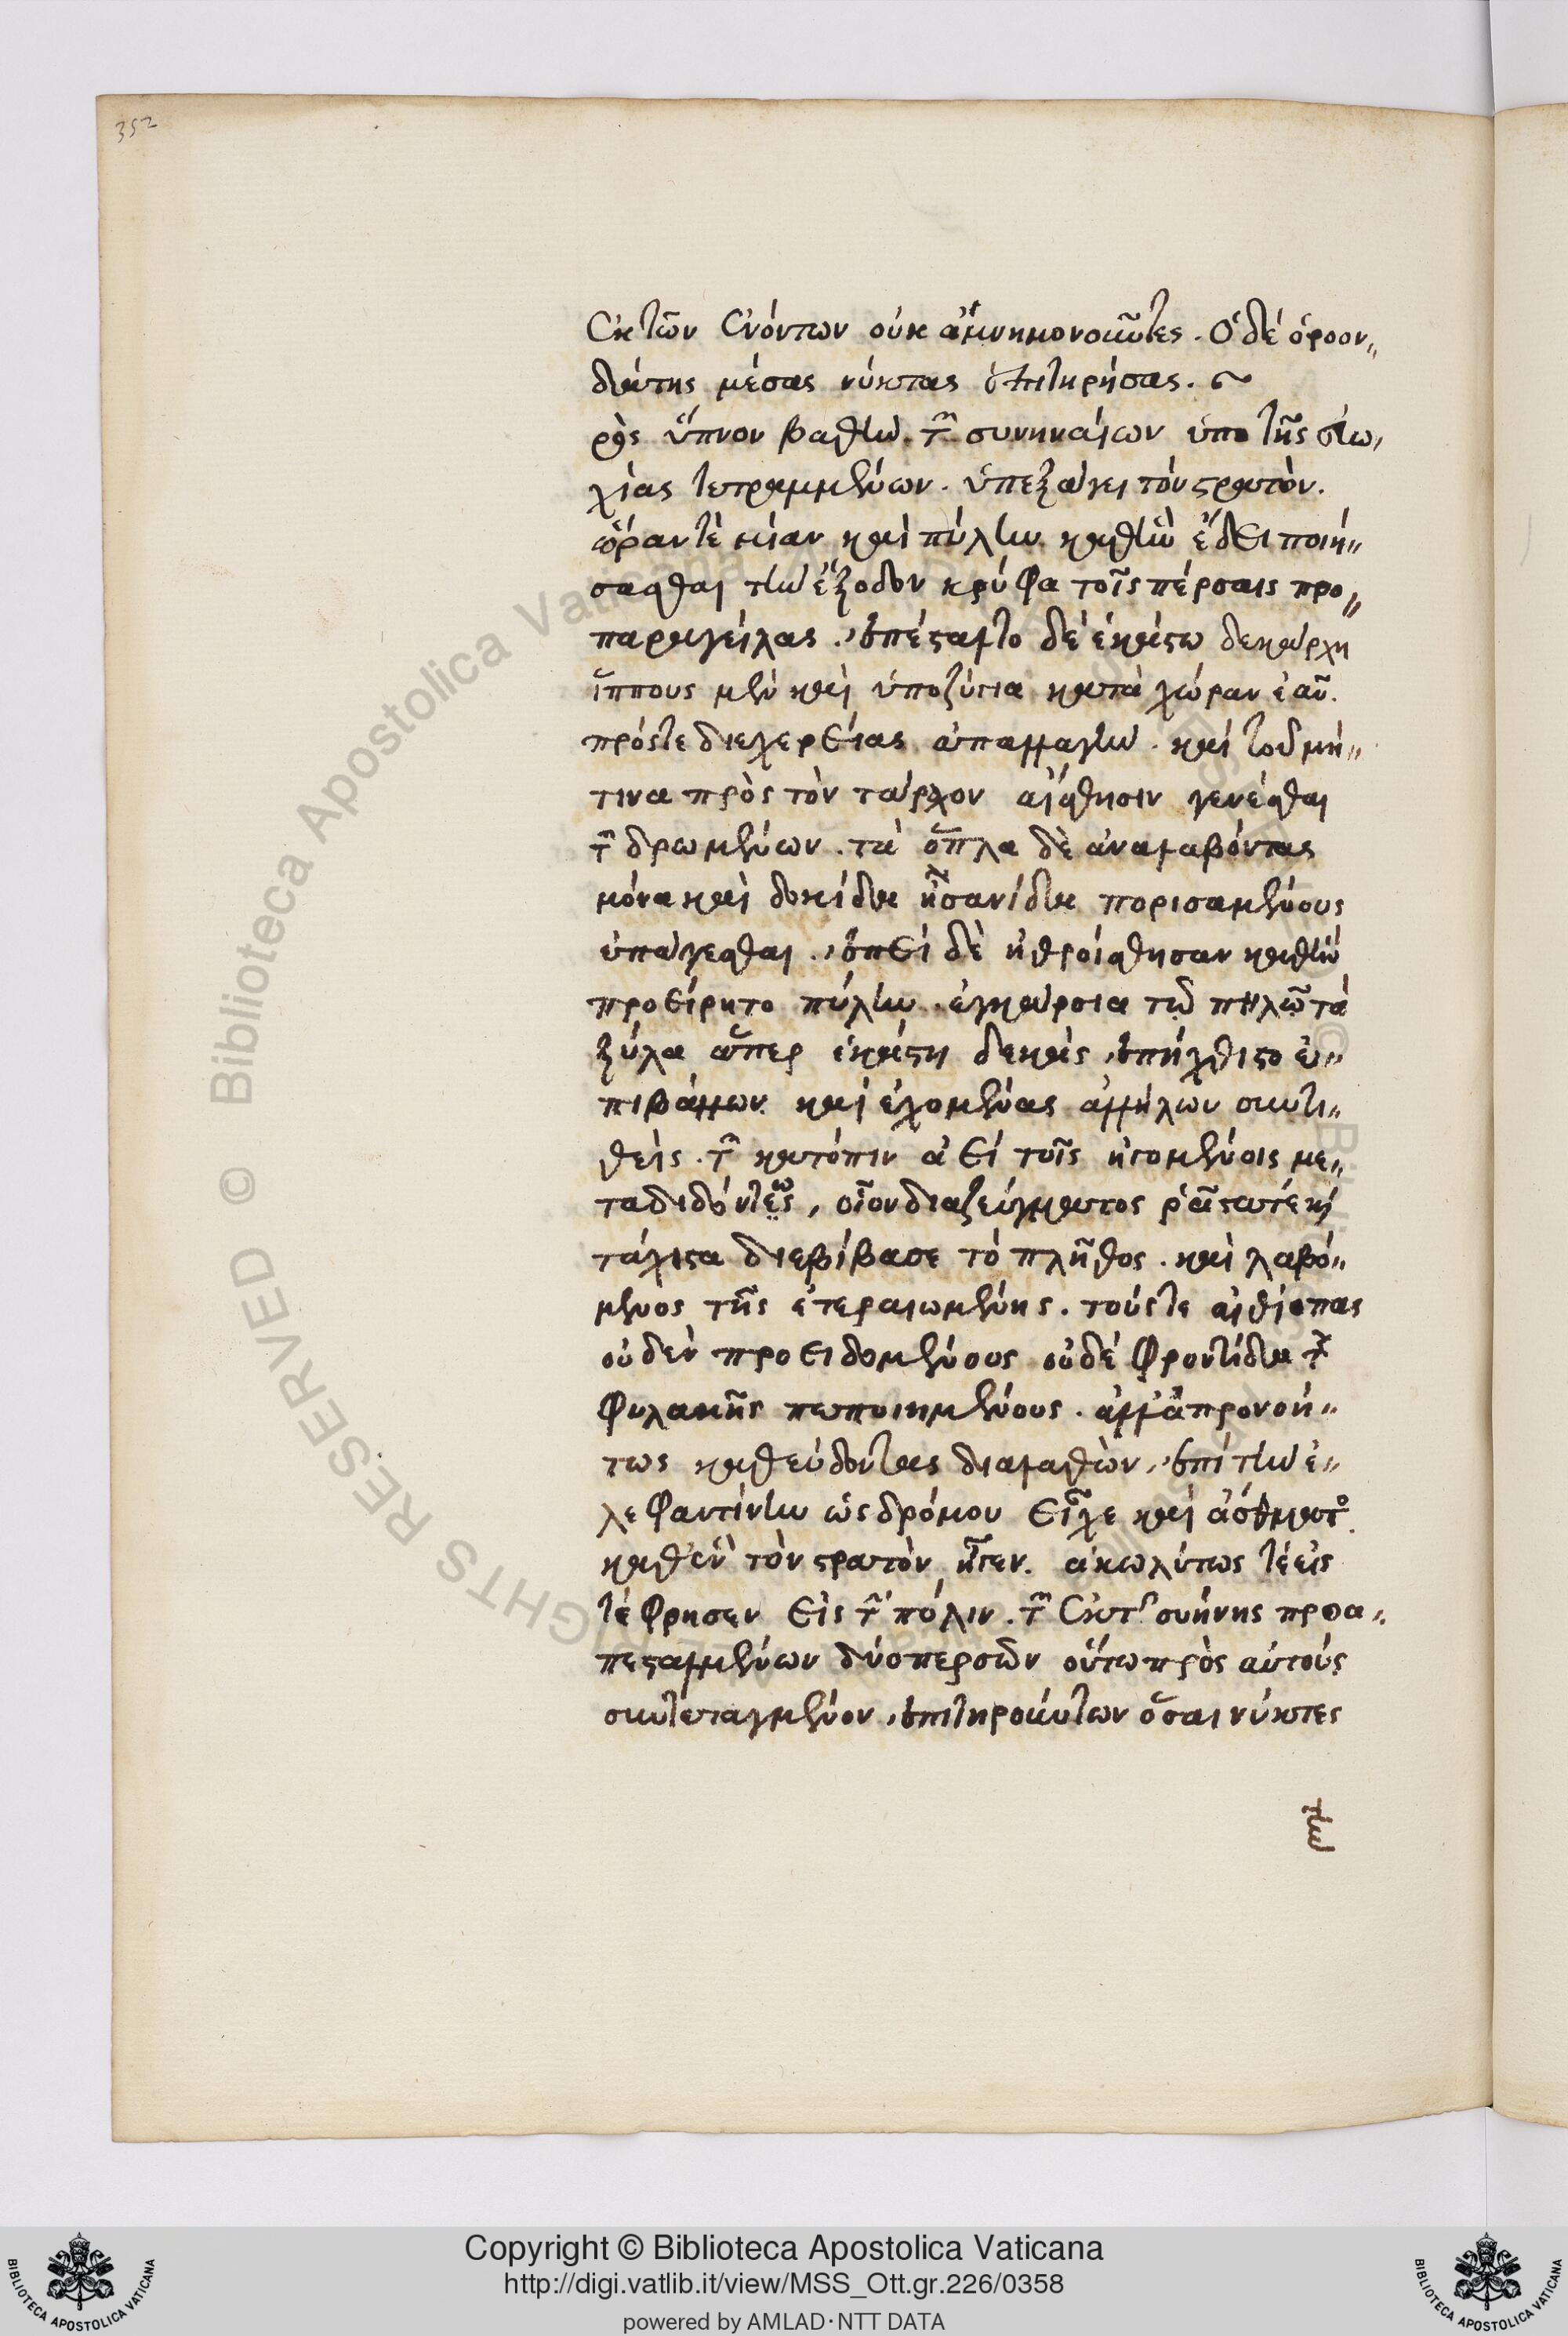 352
ἐκ τῶν ἐνόντων οὐκ ἀμνημονοῦντες. Ὁ δὲ ὀροον„
δάτης μέσας νύκτας ἐπιτηρήσας.
ρὸς ὕπνον βαθὺν. τῶν συηναίων ὑπο τῆς εὐω„
χίας τετραμμένων. ὑπεξάγει τὸν στρατὸν.
ὥραν τὲ μίαν καὶ πύλην καθ' ἣν ἔδει ποιή„
σασθαι τὴν ἔξοδον κρύφα τοῖς πέρσαις προ„
παραγείλας. ἐπέσταλτο δὲ ἑκάστω δεκάρχη
ἵππους μὲν καὶ ὑποζύγια κατὰ χώραν ἐᾶν.
πρός τε δυσχερείας ἀπαλλαγὴν. καὶ τοῦ μή„
τινα πρὸς τὸν τάραχον αἴσθησιν γενέσθαι
τῶν δρωμένων. τὰ ὅπλα δὲ ἀναλαβόντας
μόνα καὶ δοκίδα ἢ σανίδα πορισαμένους
ὑπάγεσθαι. ἐπεὶ δὲ ἠθροίσθησαν καθ' ἣν
προείρητο πύλην. ἐγκάρσια τῷ πηλῷ τὰ
ξύλα ἅπερ ἑκάστη δεκὰς ἐπήχθιστο ἐ„
πιβάλλων καὶ ἐχομένας ἀλλήλων συντι„
θεὶς. τῶν κατόπιν ἀεὶ τοῖς ἡγομένοις με„
ταδιδόντως, οἷον διαζεύγματος ῥᾷστά τε καὶ
τάχιστα διεβίβασε τὸ πλῆθος. καὶ λαβό„
μενος τῆς ἑτεραιωμένης. τούς τε αἰθίοπας
οὐδὲν προειδομένους οὐδὲ φροντίδα τῆς
φυλακῆς πεποιημένους. ἀλλ' ἀπρονοή„
τως καθεύδοντας διαλαθὼν, ἐπὶ τὴν ἐ„
λεφαντίνην ὡς δρόμου εἶχε καὶ ἄσθματος
καθ' ἓν τὸν στρατὸν ἦγεν. ἀκωλύτως τὲ εἰς
τέφρησεν εἰς τὴν πόλιν. τῶν ἐκ τῆς συήνης προα„
πεσταλμένων δύο περσῶν οὕτω πρὸς αὐτοὺς
συντεταγμένον, ἐπιτηρούντων ὅσαι νύκτες
τὴν
Copyright © Biblioteca Apostolica Vaticana
http://digi.vatlib.it/view/MSS_Ott.gr.226/0358
powered by AMLAD·NTT DATA